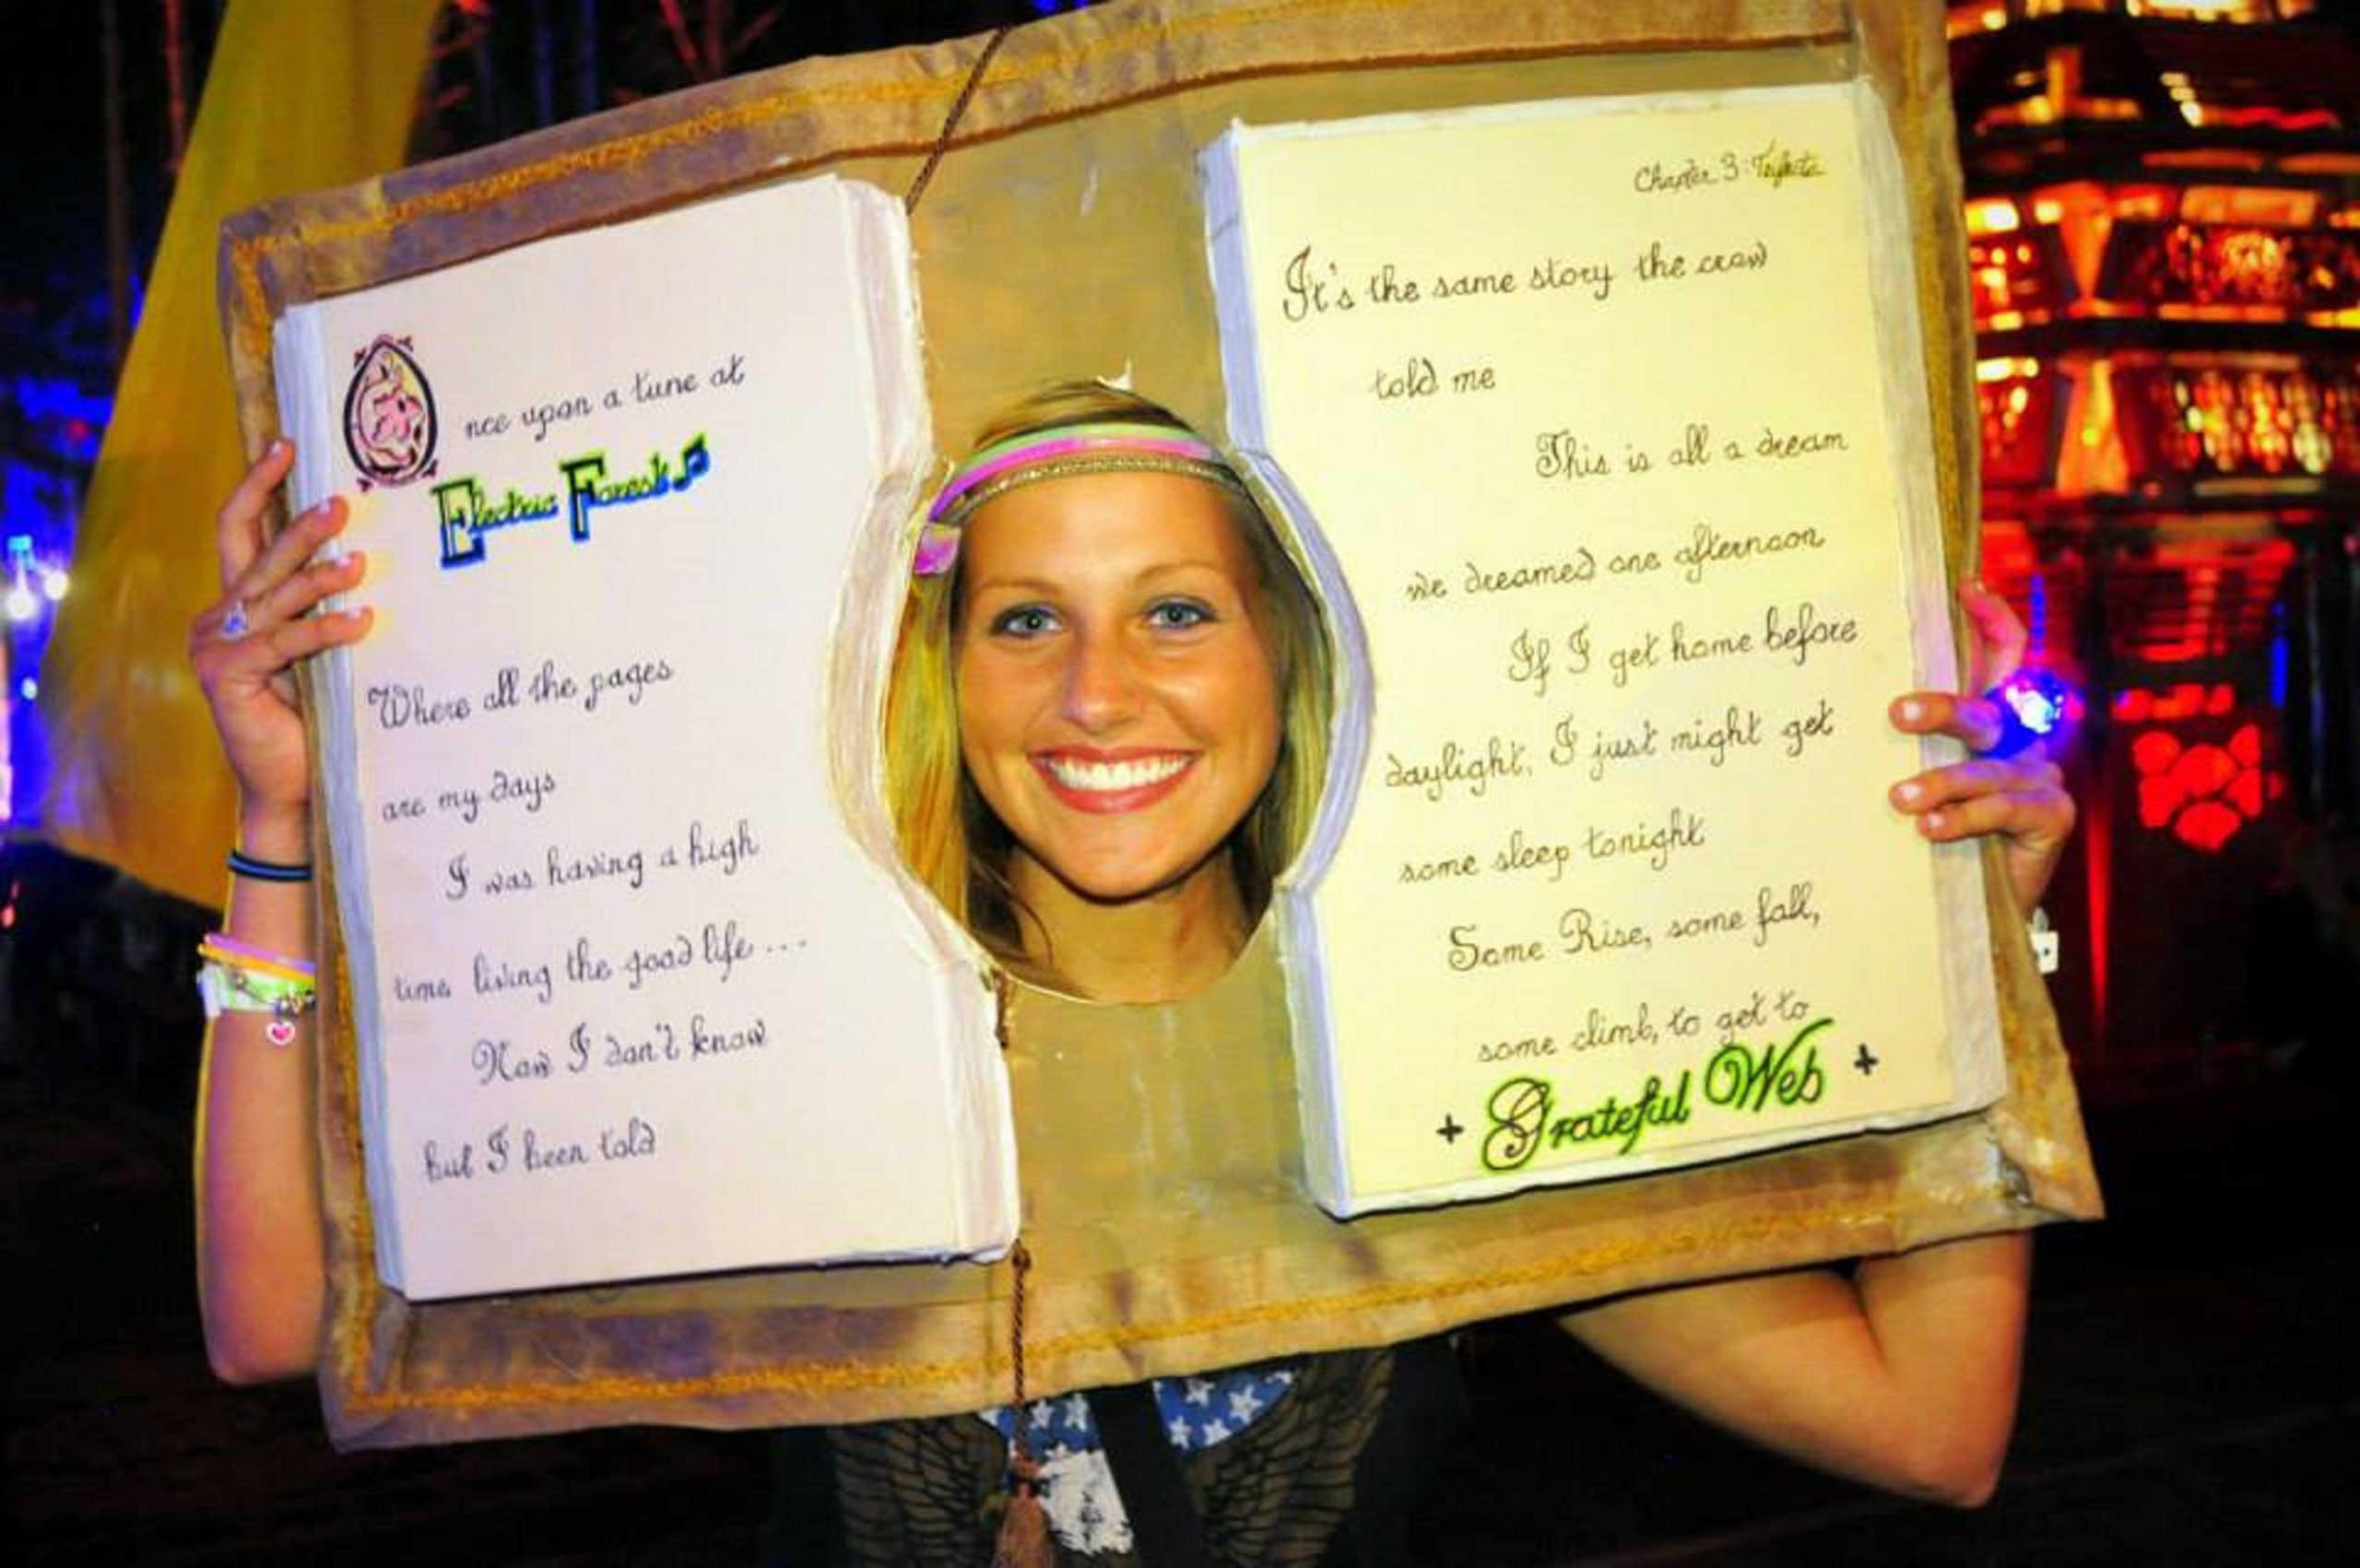 Once upon a tune at
Electric Forest
Where all the pages
are my days
I was having a high
time living the good life ...
Now I don't know
but I been told
Chapter 3:
It's the same story the crow
told me
This is all a dream
we dreamed one afternoon
If I get home before
daylight, I just might get
some sleep tonight
Some Rise, some fall,
some climb, to get to
+ Grateful Web +